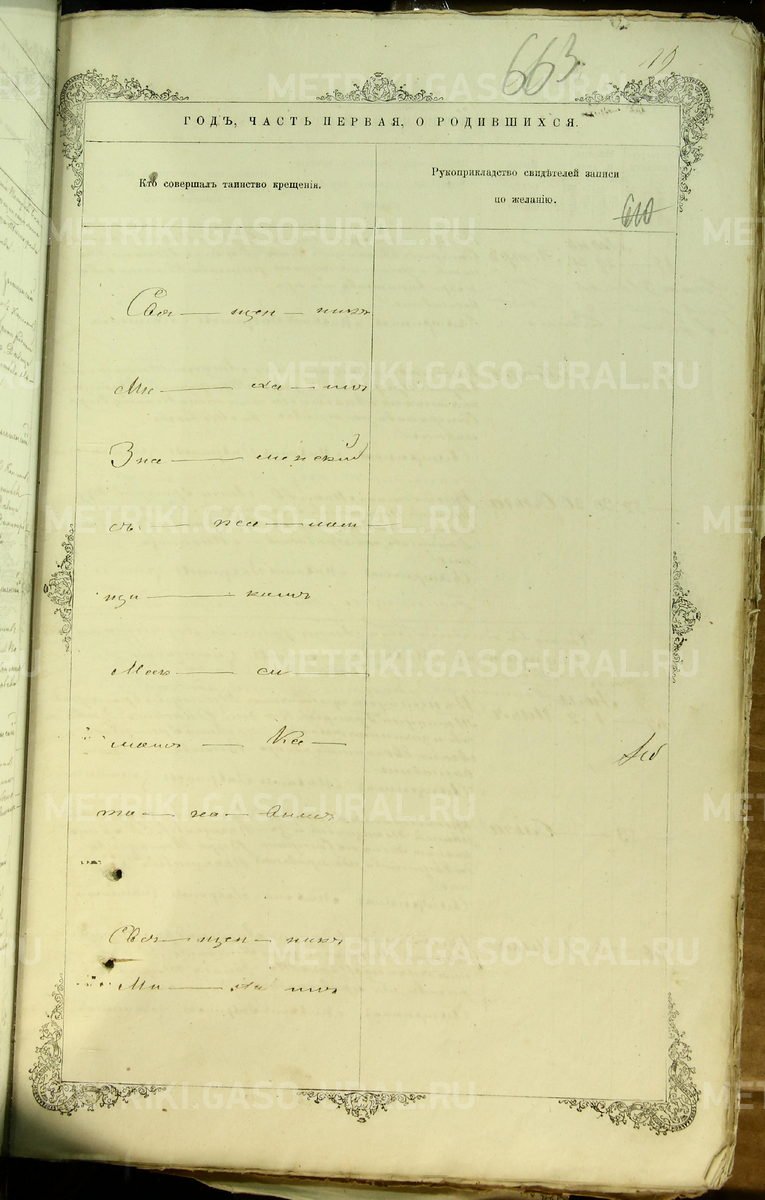 663
19
ГОДЪ, ЧАСТЬ ПЕРВАЯ, О РОДИВШИХСЯ.
Кто совершалъ таинство крещенія.
Рукоприкладство свидѣтелей записи
по желанію.
610
Свя — щен — никъ
Ми — ха — илъ
Зна — менскій
съ — пса — лом —
щи — комъ
Мак — си —
момъ — Ка —
та — на — евымъ
Свя — щен — никъ
Ми — ха — илъ
METRIKI.GASO-URAL.RU